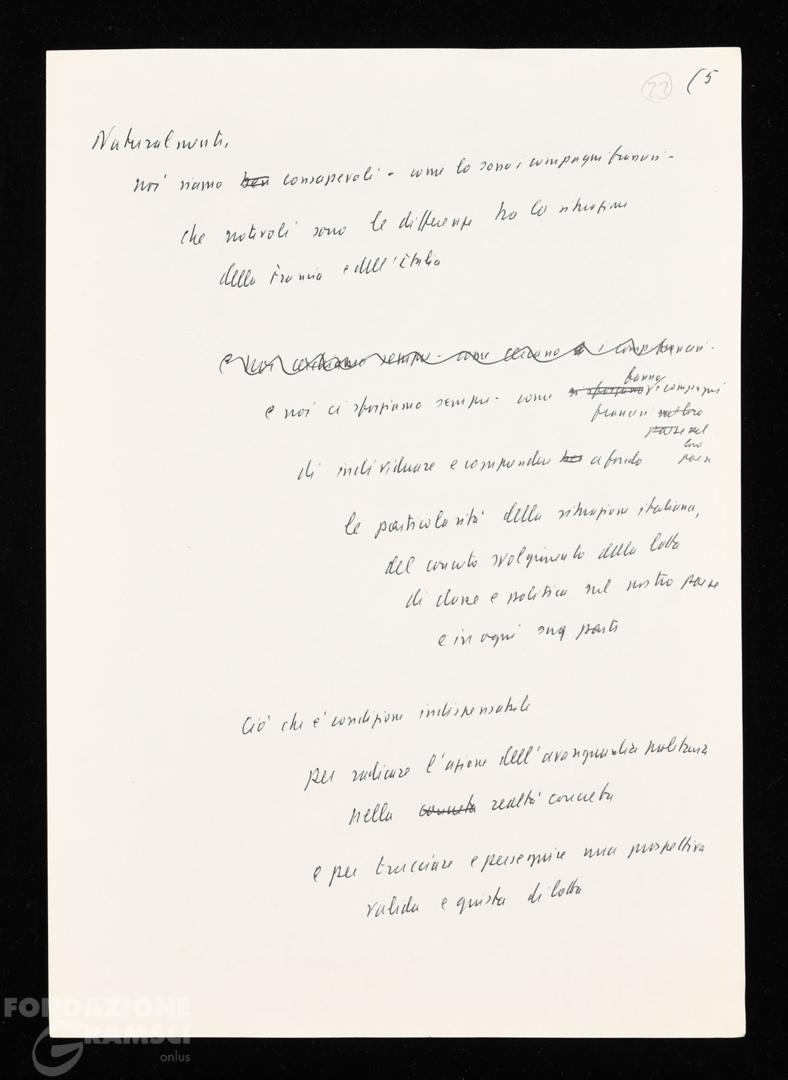 22 (5
Naturalmente,
noi siamo ben consapevoli - come lo sono i compagni francesi -
che notevoli sono le differenze tra la situazione
della Francia e dell'Italia
e noi cerchiamo sempre - come cercano i comp francesi -
e noi ci sforziamo sempre - come si sforzano fanno i compagni
francesi nel loro
paese nel
loro
paese
di individuare e comprendere ben a fondo
le particolarità della situazione italiana,
del concreto svolgimento della lotta
di classe e politica nel nostro paese
e in ogni sua parte
Ciò che è condizione indispensabile
per radicare l'azione dell'avanguardia proletaria
nella concreta realtà concreta
e per tracciare e perseguire una prospettiva
valida e giusta di lotta
FONDAZIONE
GRAMSCI
onlus